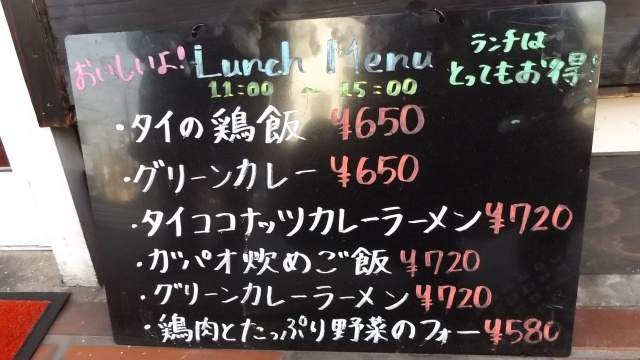 おいしいよ! Lunch Menu ランチは
とってもお得!
11:00 ~ 15:00
・タイの鶏飯 ¥650
・グリーンカレー ¥650
・タイココナッツカレーラーメン ¥720
・ガパオ炒めご飯 ¥720
・グリーンカレーラーメン ¥720
・鶏肉とたっぷり野菜のフォー ¥580